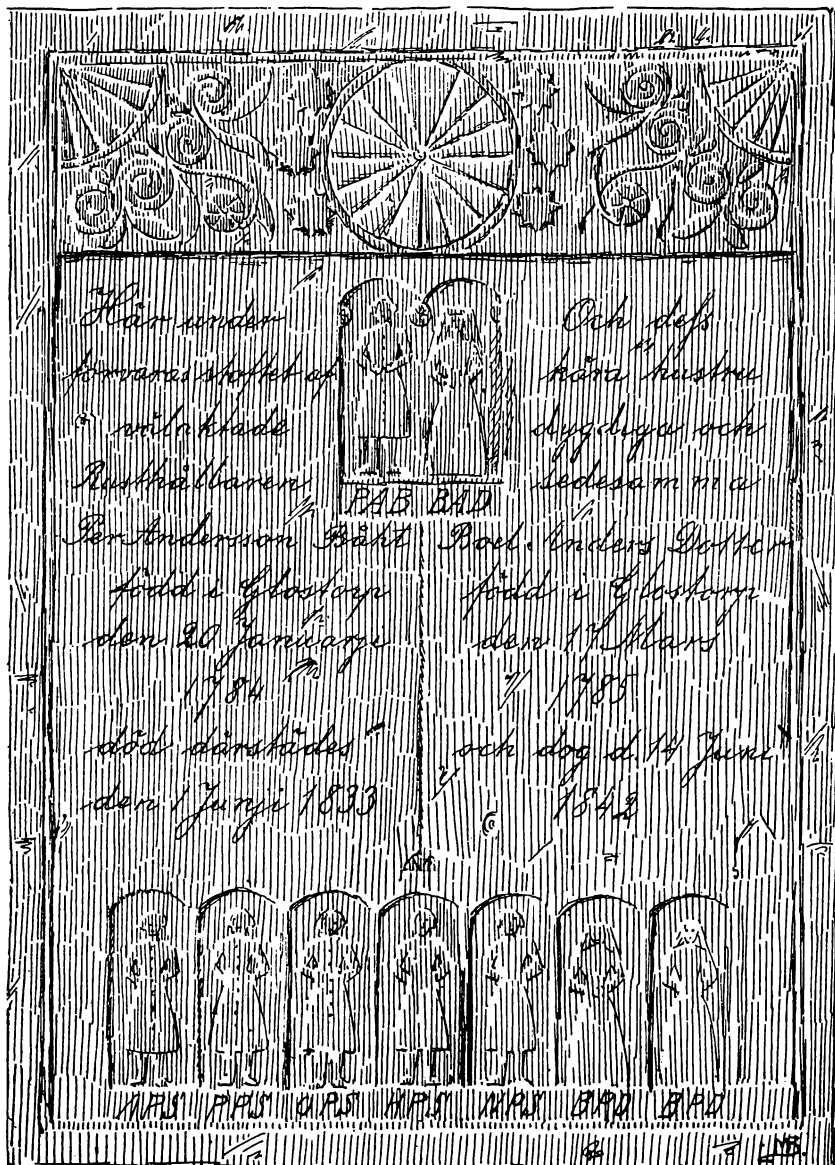 Här under
förvaras stoftet af
välaktade
Rusthållaren
Per Andersson Bååt
född i Glostorp
den 20 Januarji
1784
död därstädes
den 1 Junji 1833
PAB BAD
Och dess
kära hustru
dygdiga och
sedesamma
Boel Anders Dotter
född i Glostorp
den 17 Mars
1785
och dog d. 14 Juni
1842
APS PPS OPS HPS NPS BPD BPD
MB.